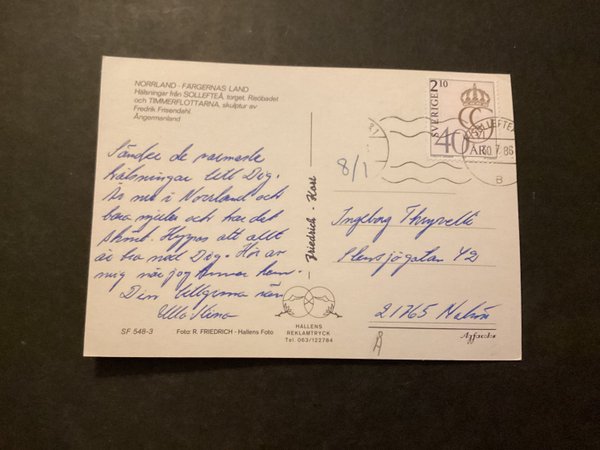 NORRLAND - FÄRGERNAS LAND
Hälsningar från SOLLEFTEÅ, torget, Risöbadet
och TIMMERFLOTTARNA, skulptur av
Fredrik Frisendahl.
Ångermanland
Sänder de varmaste
hälsningar till Dig.
Är nu i Norrland och
bara njuter och har det
skönt. Hoppas att allt
är bra med Dig. Hör av
mig när jag kommer hem.
Din tillgivna vän
Ulla Stina
SF 548-3
Foto: R. FRIEDRICH - Hallens Foto
Friedrich - Kort
HALLENS
REKLAMTRYCK
Tel. 063/122764
8/1
SVERIGE 2 10
40 ÅR
SOLLEFTEÅ
7 86
B
Ingeborg
42
21765 Malmö
Agfacolor